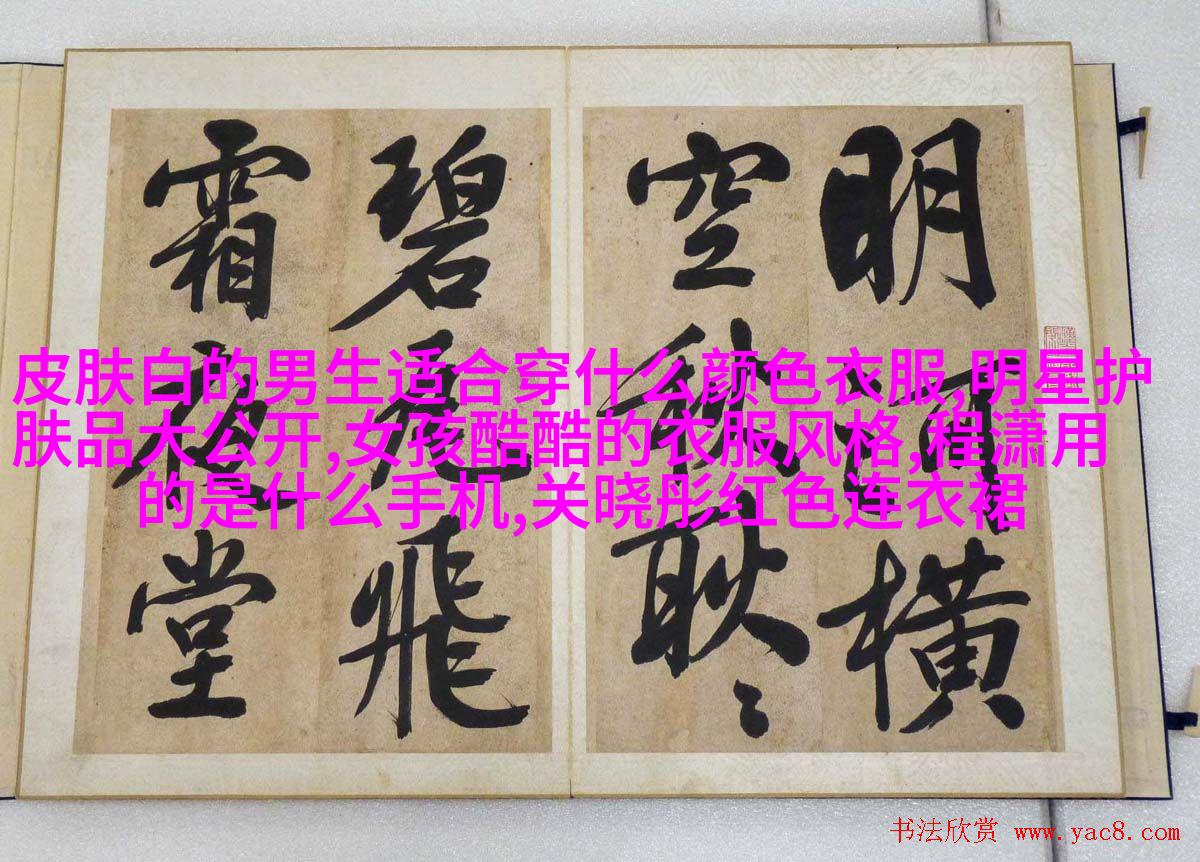 明河橫
空秋耿〻
碧瓦飛
霜夜堂
皮肤白的男生适合穿什么颜色衣服,明星护
肤品大公开,女孩酷酷的衣服风格,程潇用
的是什么手机,关晓彤红色连衣裙
书法欣赏 www.yac8.com